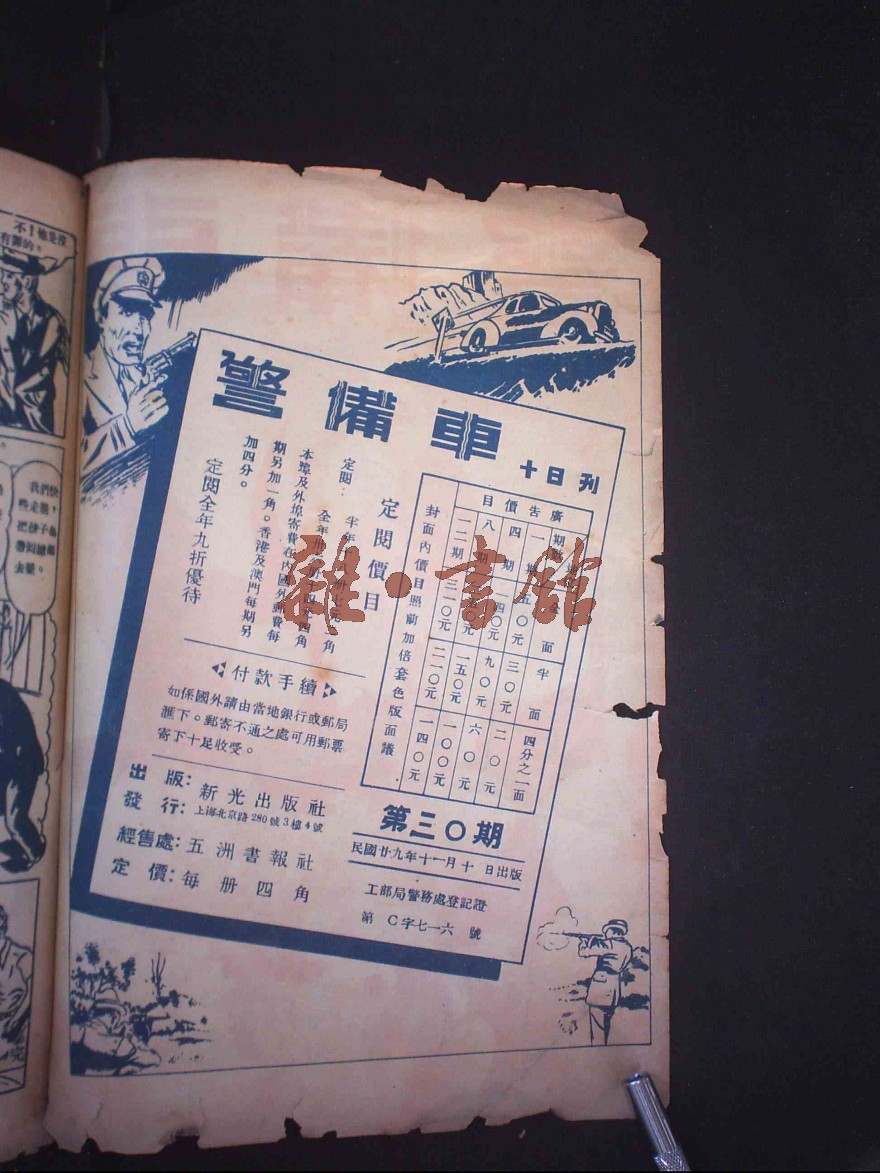 不！他是沒
有罪的。
我們快
些走罷，
去罷。
警備車
十日刊
定閱價目
定閱：
半年
全年
本埠及外埠寄費在內國外郵費每
期另加一角。香港及澳門每期另
加四分。
定閱全年九折優待
付款手續
如係國外請由當地銀行或郵局
滙下。郵寄不通之處可用郵票
寄下十足收受。
出版：
發行：
新光出版社
上海北京路280號3樓4號
經售處：五洲書報社
定價：每册四角
廣告價目
期 面 半面 四分之一面
一期 五〇元 三〇元 二〇元
四期 一四〇元 九〇元 六〇元
八期 〇元 一五〇元 一〇〇元
一二期 三一〇元 二一〇元 一四〇元
封面內價目照前加倍套色版面議
第三〇期
民國廿九年十一月十日出版
工部局警務處登記證
第C字七一六號
雜·書館